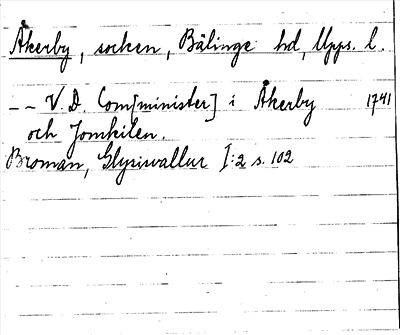 Åkerby, socken, Bälinge hd, Upps. l.
-- V.D. Com[minister] i Åkerby 1741
och Jomkilen.
Broman, Glysisvallur I:2 s. 102